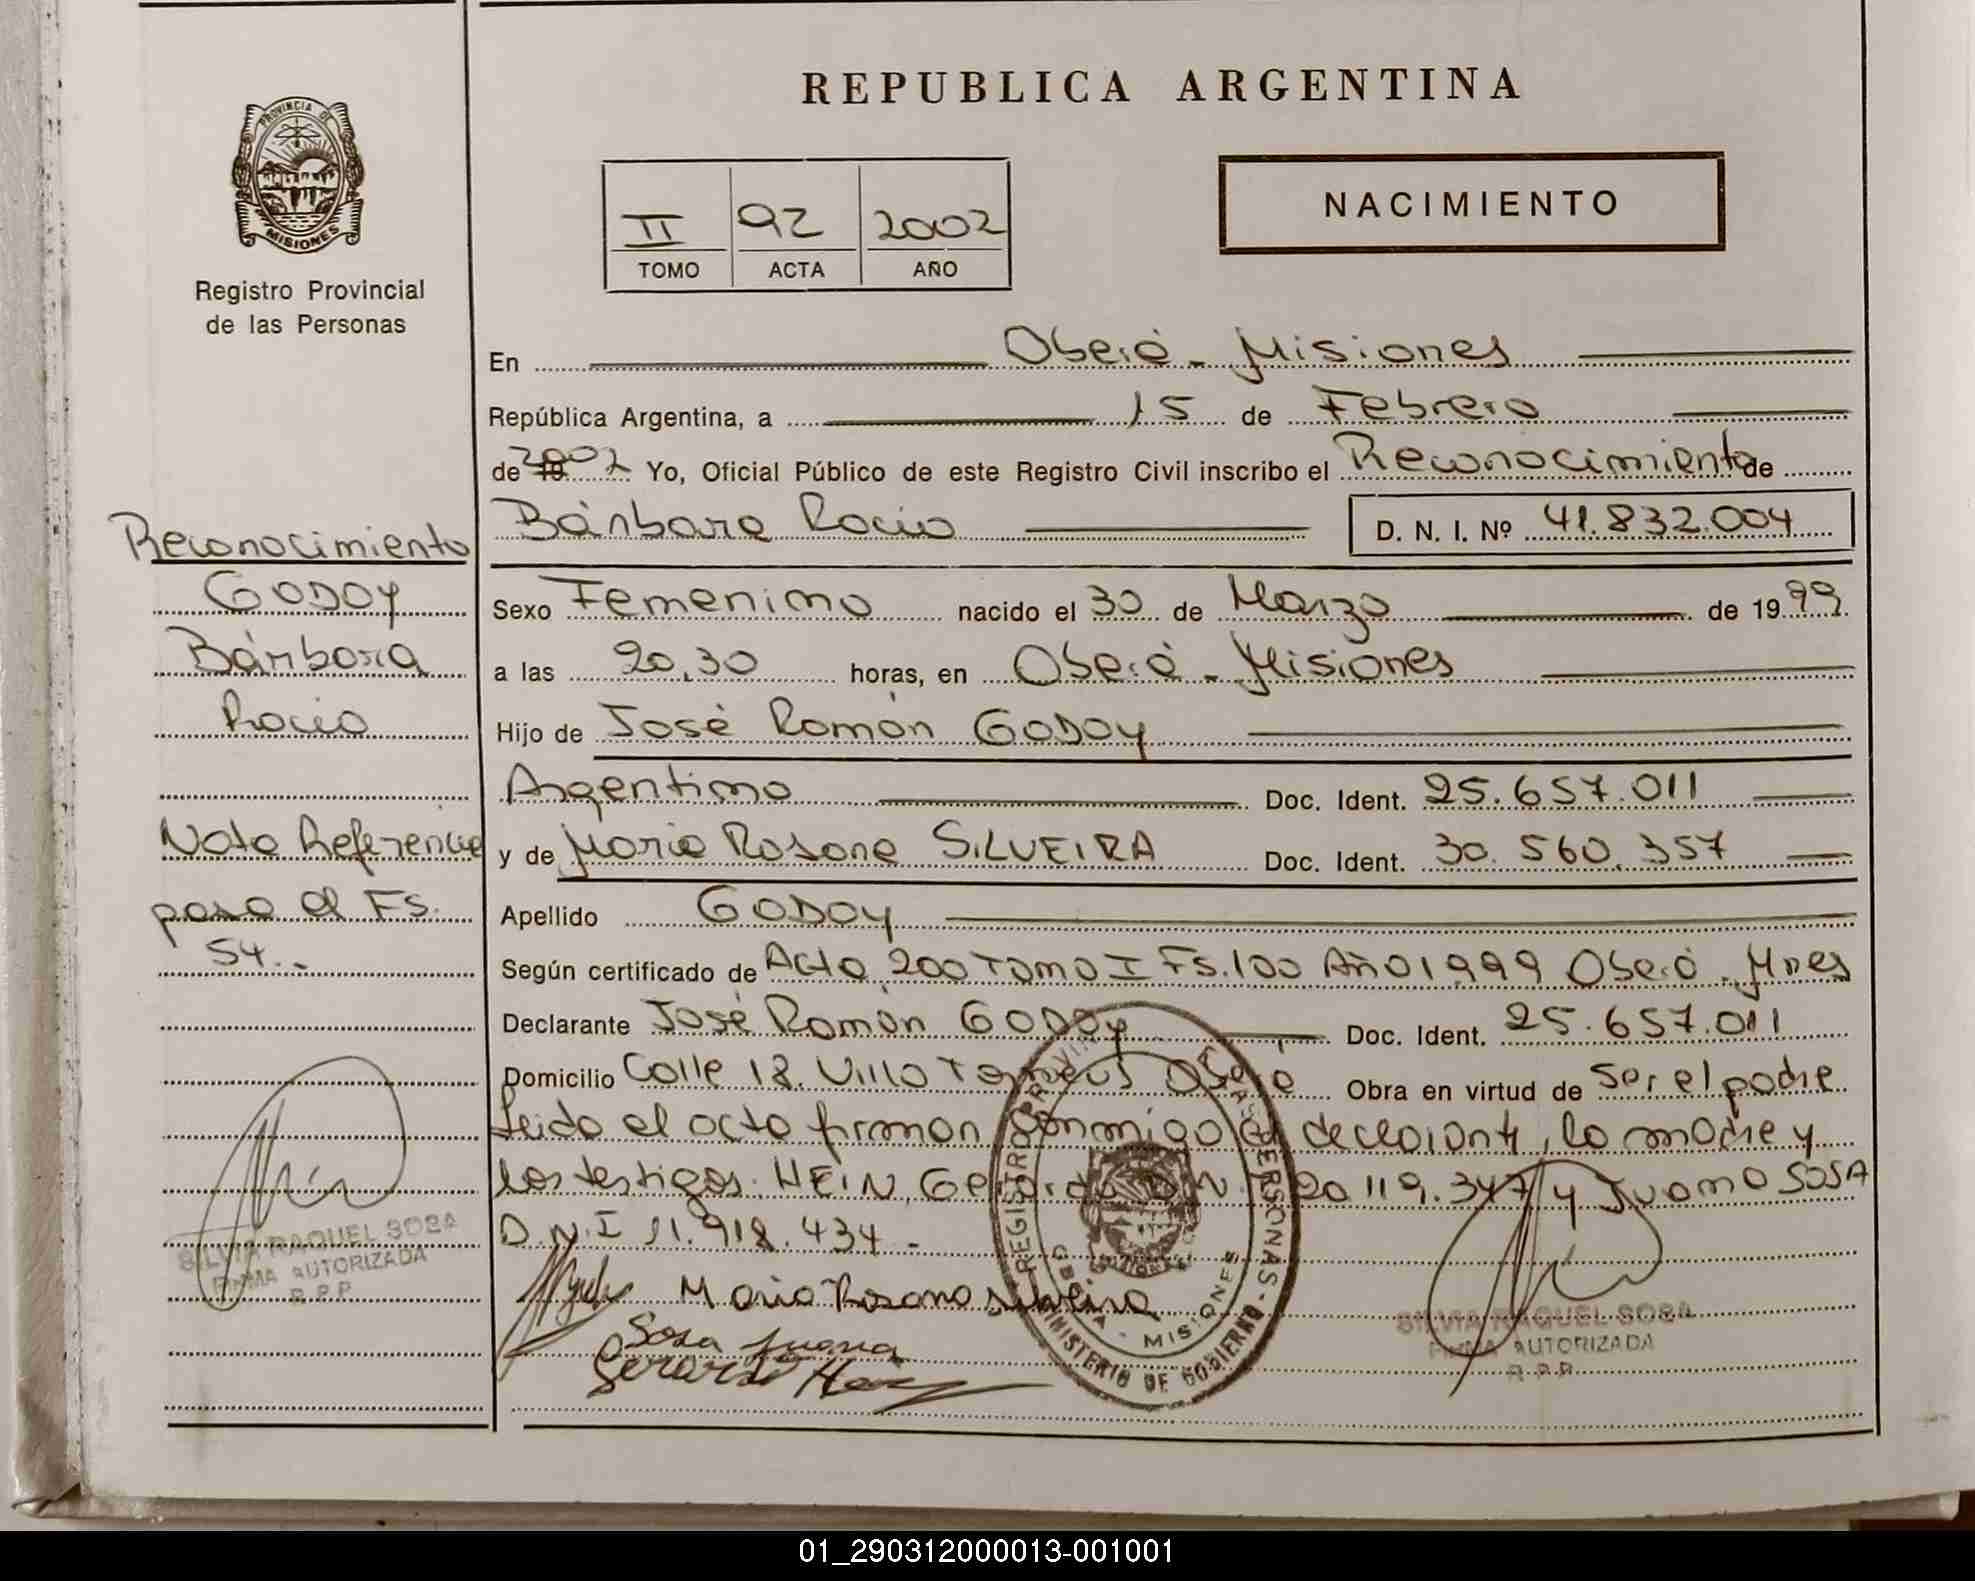 REPUBLICA ARGENTINA
PROVINCIA DE
MISIONES
Registro Provincial
de las Personas
II 92 2002
TOMO ACTA AÑO
NACIMIENTO
En Oberá - Misiones
República Argentina, a 15 de Febrero
de 19 2002 Yo, Oficial Público de este Registro Civil inscribo el Reconocimiento de
Bárbara Rocio D. N. I. Nº 41.832.004
Sexo Femenino nacido el 30 de Marzo de 1999
a las 20,30 horas, en Oberá - Misiones
Hijo de José Ramón GODOY
Argentino Doc. Ident. 25.657.011
y de Maria Rosana SILVEIRA Doc. Ident. 30.560.357
Apellido GODOY
Según certificado de Acta 200 Tomo I Fs. 100 Año 1999 Oberá - Mnes
Declarante José Ramón GODOY Doc. Ident. 25.657.011
Domicilio Calle 18. Villa Oberá Obra en virtud de ser el padre
Leida el acta firman conmigo el declarante, la madre y
los testigos. HEIN, Gerardo D.N.I 20.119.347 y Juana SOSA
D.N.I 11.918.434 -
Maria Rosana Silveira
Sosa Juana
Gerardo Hein
Reconocimiento
GODOY
Bárbara
Rocio
Nota Referencia
pasa al Fs.
54.-
SILVIA RAQUEL SOSA
FIRMA AUTORIZADA
R.P.P.
REGISTRO PROVINCIAL DE LAS PERSONAS - MINISTERIO DE GOBIERNO
OBERA - MISIONES
SILVIA RAQUEL SOSA
FIRMA AUTORIZADA
R.P.P.
01_290312000013-001001